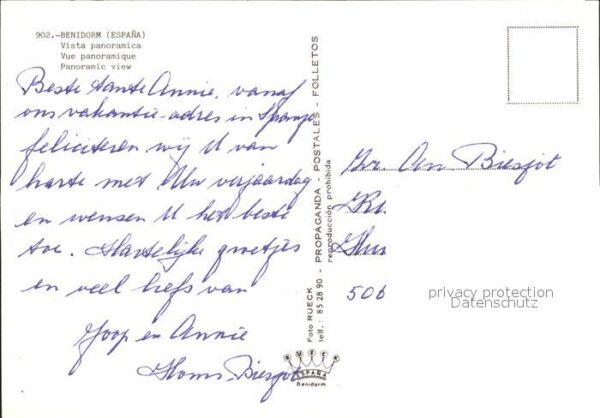 902.-BENIDORM (ESPAÑA)
Vista panoramica
Vue panoramique
Panoramic view
Beste tante Annie, vanaf
ons vakantie-adres in Spanje
feliciteren wij U van
harte met Uw verjaardag
en wensen U het beste
toe. Hartelijke groetjes
en veel liefs van
Joop en Annie
Biesjot
Foto RUECK - PROPAGANDA - POSTALES - FOLLETOS
telf.: 85 28 90 - reproducción prohibida
RUECK
ESPAÑA
Benidorm
Biesjot
506
privacy protection
Datenschutz